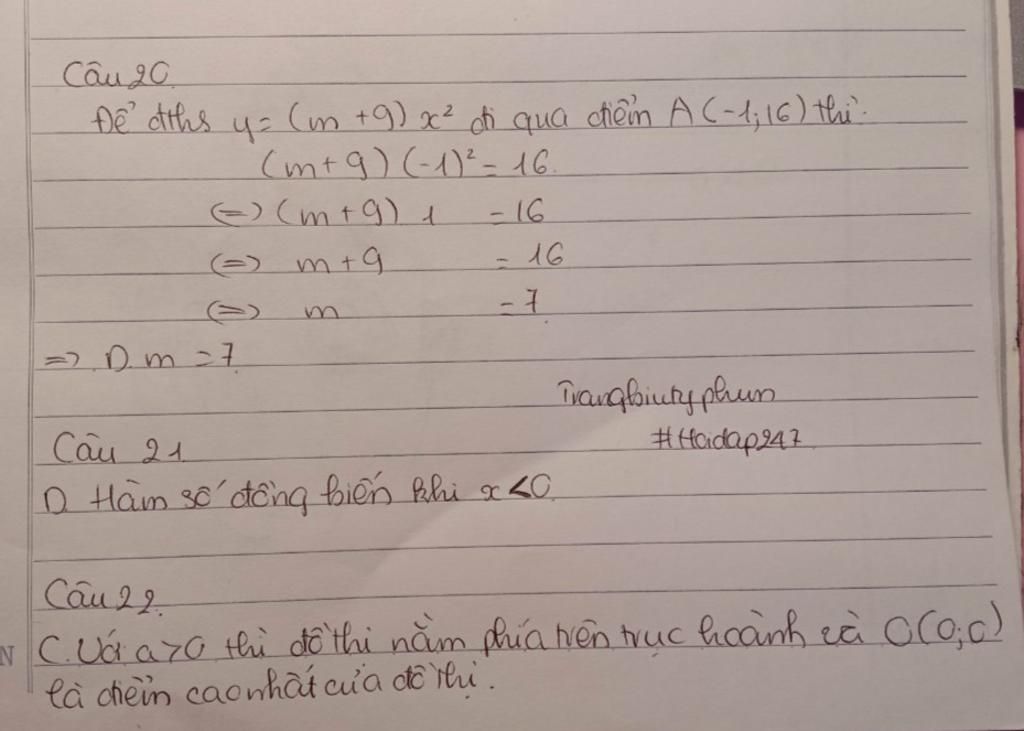 Câu 20.
Để đths y = (m + 9) x² đi qua điểm A (-1; 16) thì:
(m + 9) (-1)² = 16.
(=) (m + 9) 1 = 16
(=) m + 9 = 16
(=) m = 7.
=> D. m = 7.
Trangbiuty phun
#Hoidap247
Câu 21
D. Hàm số đồng biến khi x < 0.
Câu 22.
N
C. Với a > 0 thì đồ thị nằm phía trên trục hoành và O (0; 0)
là điểm cao nhất của đồ thị.